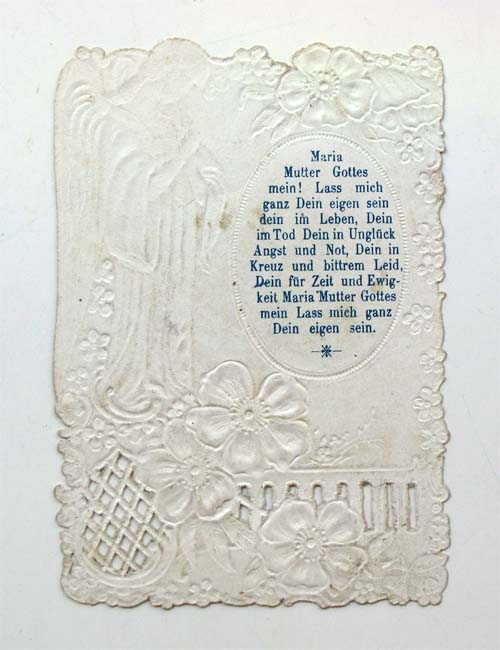 Maria
Mutter Gottes
mein! Lass mich
ganz Dein eigen sein
dein im Leben, Dein
im Tod Dein in Unglück
Angst und Not, Dein in
Kreuz und bittrem Leid,
Dein für Zeit und Ewig-
keit Maria Mutter Gottes
mein Lass mich ganz
Dein eigen sein.